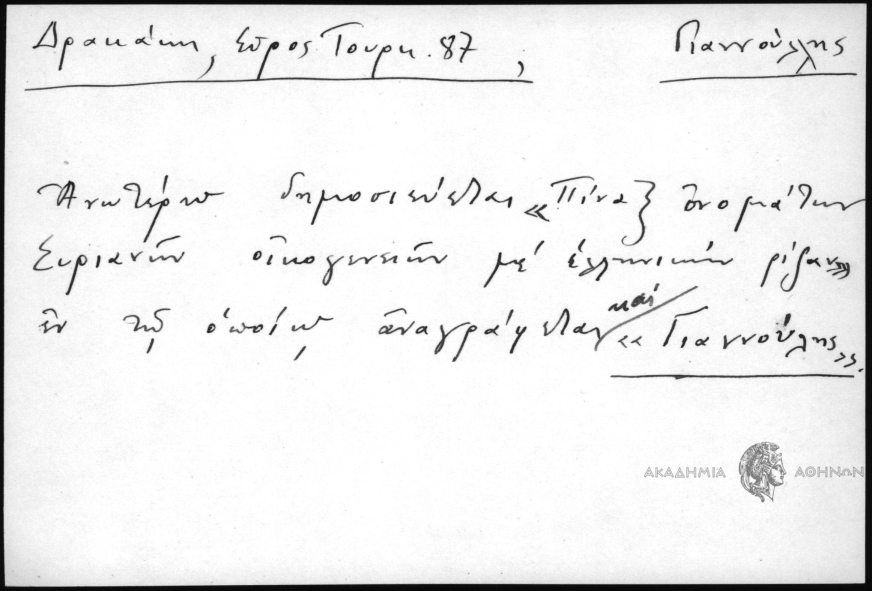 Δρακάκη, Σῦρος Τουρκ. 87, Γιαννούλης
Ἀνωτέρω δημοσιεύεται «Πίναξ ὀνομάτων
Συριανῶν οἰκογενειῶν μέ ἑλληνικήν ρίζαν»
ἐν τῷ ὁποίῳ ἀναγράφεται καί «Γιαννούλης».
ΑΚΑΔΗΜΙΑ ΑΘΗΝΩΝ